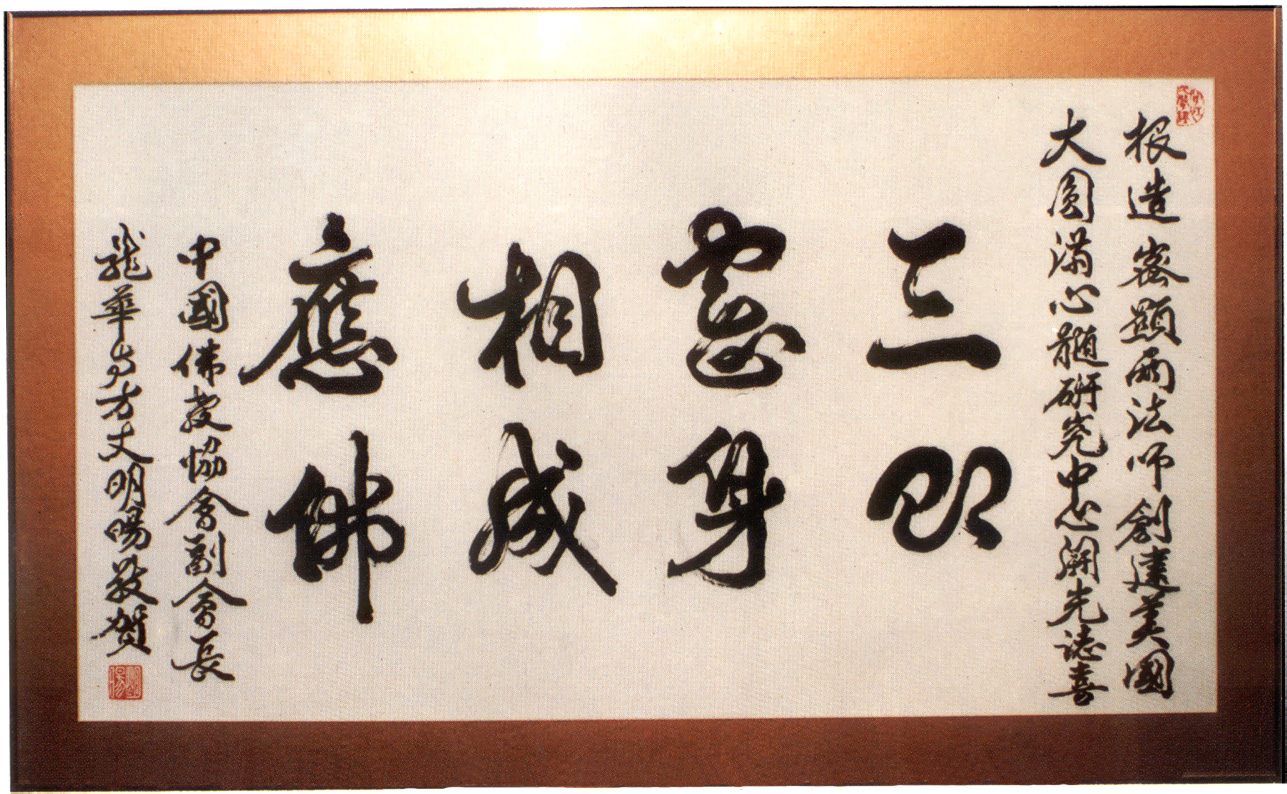 根造密顯兩法師創建美國
大圓滿心髓研究中心開光誌喜
三密相應
即身成佛
中國佛教協會副會長
龍華寺方丈明暘敬賀